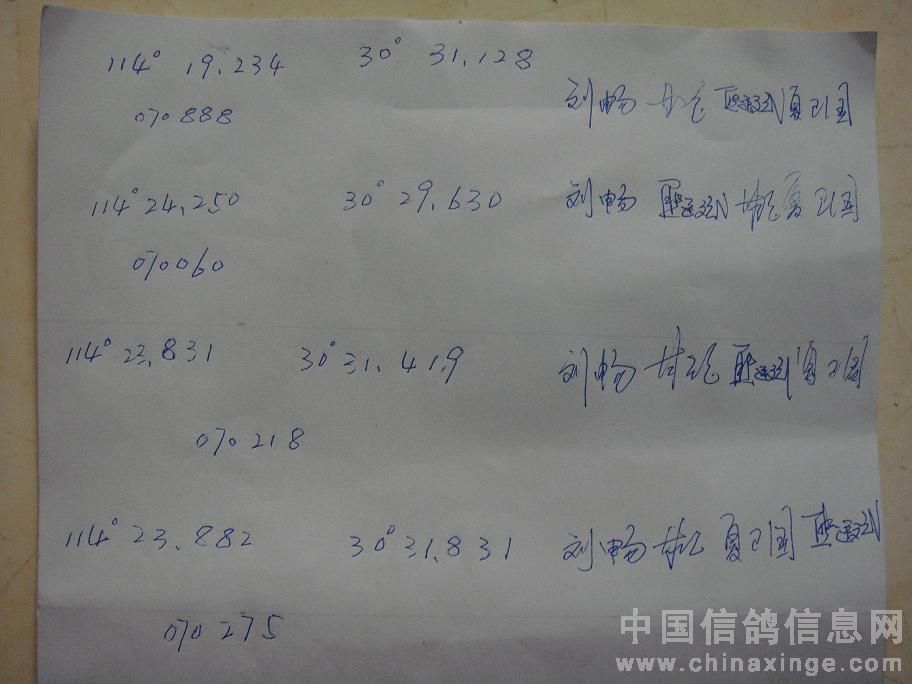 114° 19.234 30° 31.128
070888 刘畅 夏卫国
114° 24.250 30° 29.630 刘畅 夏卫国
070060
114° 23.831 30° 31.419 刘畅 夏卫国
070218
114° 23.882 30° 31.831 刘畅 夏卫国
070275
中国信鸽信息网
www.chinaxinge.com